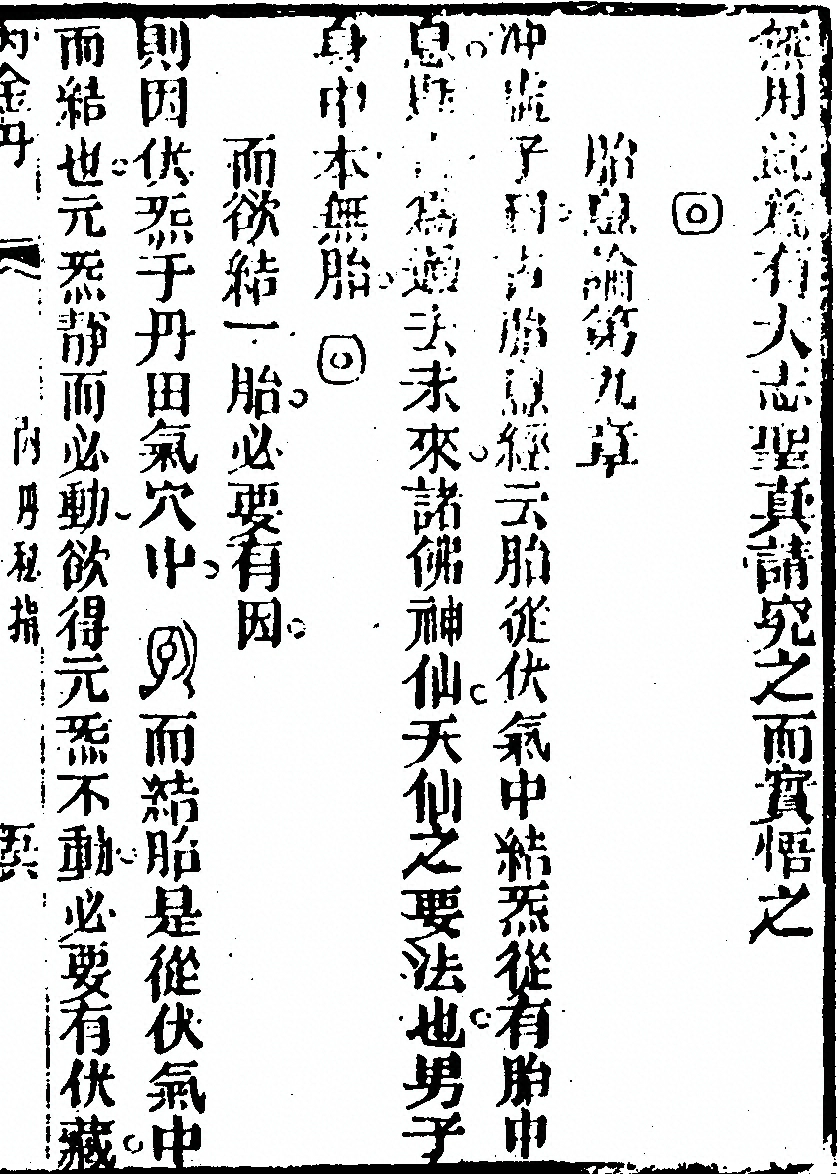 無用此爲有大志聖真請究之而實悟之
胎息論第九章
冲虛子曰古胎息經云胎從伏氣中結炁從有胎中
息與爲過去未來諸佛神仙天仙之要法也男子
身中本無胎
而欲結一胎必要有因
則因伏炁于丹田氣穴中而結胎是從伏氣中
而結也元炁靜而必動欲得元炁不動必要有伏藏
内金丹
内丹秘指